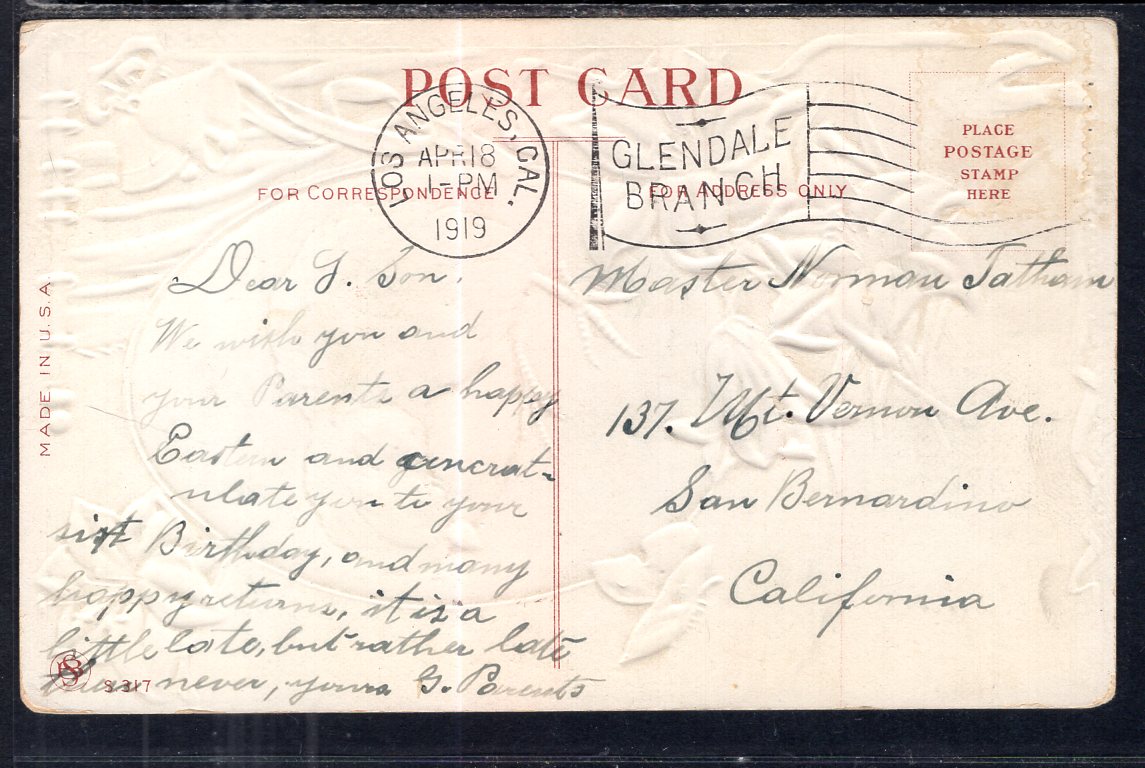 POST CARD
LOS ANGELES, CAL.
APR 18
1-PM
1919
GLENDALE
BRANCH
PLACE
POSTAGE
STAMP
HERE
FOR CORRESPONDENCE
FOR ADDRESS ONLY
MADE IN U.S.A.
Dear G. Son.
We wish you and
your Parents a happy
Eastern and
ulate you to your
sixt Birthday, and many
happy returns, it is a
little late, but rather late
than never, yours G. Parents
Master Norman Tatham
137. Mt. Vernon Ave.
San Bernardino
California
S 317